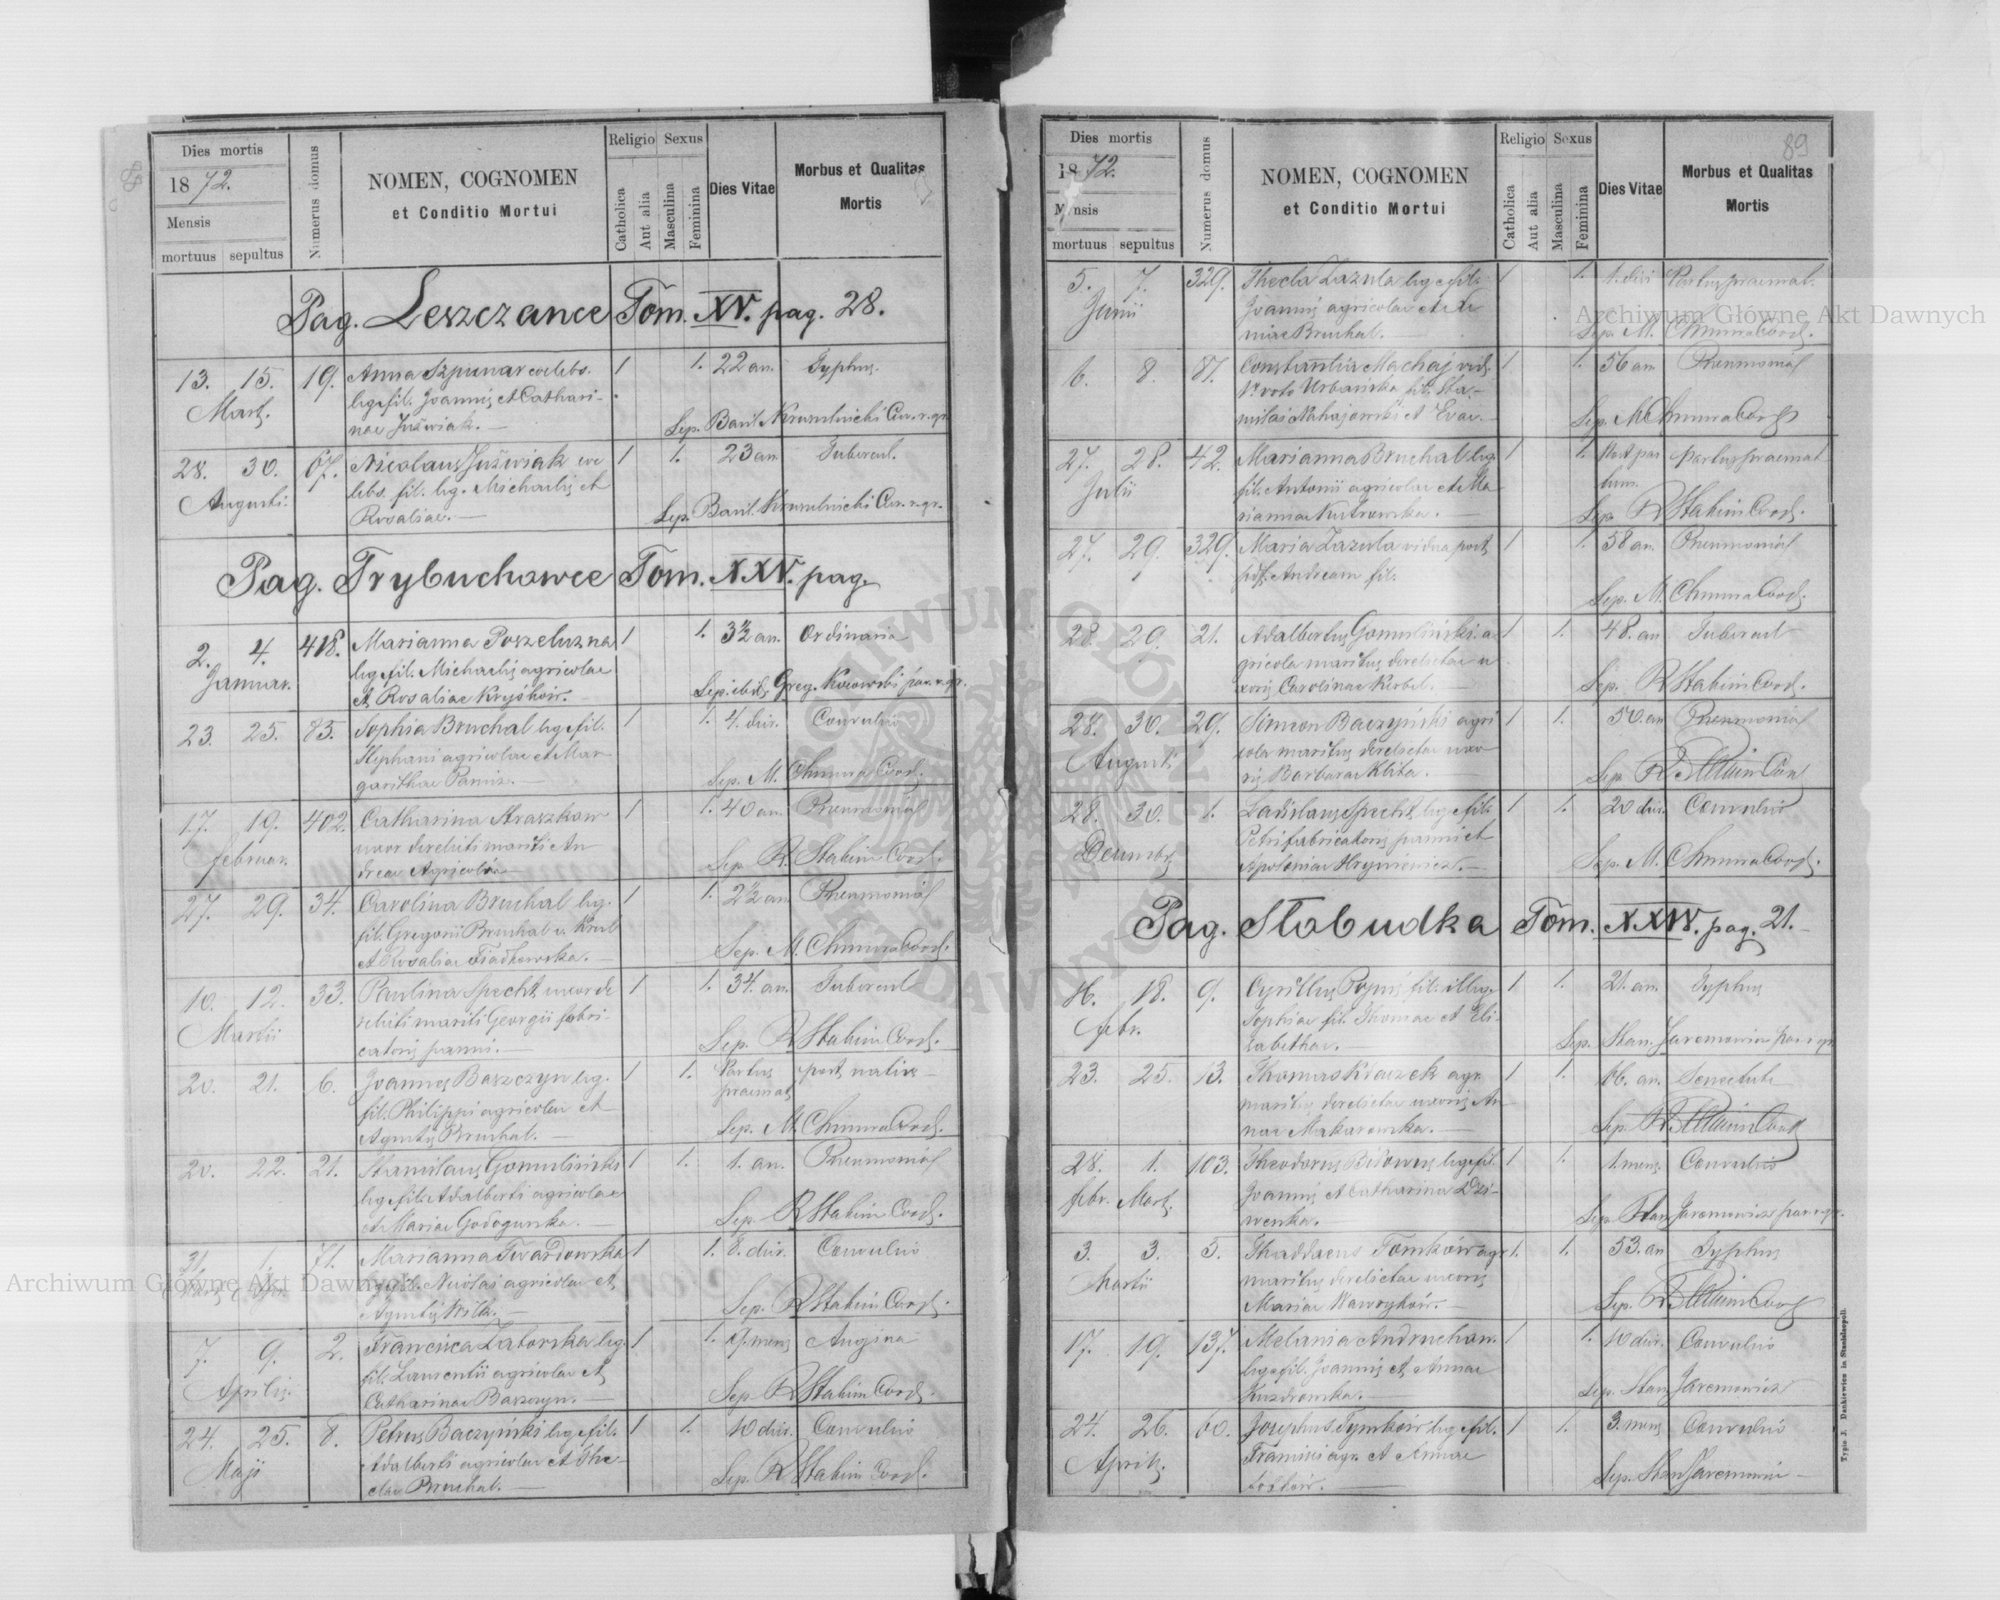 Dies mortis
1872.
Mensis
mortuus sepultus
Numerus domus
NOMEN, COGNOMEN
et Conditio Mortui
Religio
Catholica
Aut alia
Sexus
Masculina
Feminina
Dies Vitae
Morbus et Qualitas
Mortis
Pag. Leszczance Tom. XV. pag. 28.
13. 15. 19. Anna Szpunar coelebs. 1 1. 22 an. Typhus.
Mart. leg. fil. Joannis et Cathari-
nae Juźwiak. Sep. Basil. Cur. r. gr.
28. 30. 67. Nicolaus Juźwiak coe 1 1. 23 an. Tubercul.
Augusti lebs. fil. leg. Michaelis et
Rosaliae. Sep. Basil. Cur. r. gr.
Pag. Trybuchowce Tom. XXV. pag.
2. 4. 418. Marianna Poszeluzna 1 1. 3½ an. Ordinaria
Januar. leg. fil. Michaelis agricolae
et Rosaliae Sep. Greg.
23. 25. 83. Sophia Bruchal leg. fil. 1 1. 4. dier. Convulsio
Stephani agricolae et Mar
garithae Sep. M. Chmura Coop.
17. 19. 402. Catharina 1 1. 40 an. Pneumonia
Februar. uxor derelicti mariti An
dreae Agricolae Sep. R. Stahim Coop.
27. 29. 34. Carolina Bruchal leg. 1 1. 2½ an Pneumonia
fil. Gregorii Bruchal
et Rosaliae Sep. M. Chmura Coop.
10. 12. 33. Paulina Specht uxor de 1 1. 34. an. Tubercul
Martii relicti mariti Georgii fabri-
catoris panni. Sep. R Stahim Coop.
20. 21. 6. Joannes Baszczyn leg. 1 1. Partus post nativ
fil. Philippi agricolae et praemat
Agnetis Bruchal. Sep. M. Chmura Coop.
20. 22. 21. Stanislaus Gomuliński 1 1. 1. an. Pneumonia
leg. fil. Adalberti agricolae
et Mariae Sep. R Stahim Coop.
31. 1. 71. Marianna Twardowska 1 1. 8. dier. Convulsio
leg. fil. Nicolai agricolae et
Agnetis Wilk. Sep. R Stahim Coop.
7. 9. 2. Francisca Zatorska leg. 1 1. mens Angina
Aprilis fil. Laurentii agricolae et
Catharinae Baszczyn. Sep R Stahim Coop.
24. 25. 8. Petrus Baczyński leg. fil. 1 1. 10 dier. Convulsio
Maji Adalberti agricolae et The
clae Bruchal. Sep. R Stahim Coop.
89
Dies mortis
1872.
Mensis
mortuus sepultus
Numerus domus
NOMEN, COGNOMEN
et Conditio Mortui
Religio
Catholica
Aut alia
Sexus
Masculina
Feminina
Dies Vitae
Morbus et Qualitas
Mortis
5. 7. 329. Thecla Zazula leg. fil. 1 1. 1. diei Partus praemat.
Junii Joannis agricolae et
Bruchal. Sep. M. Chmura Coop.
6. 8. 87. Constantia Machaj vid. 1 1. 56 an Pneumonia
voto Urbańska fil. Sta-
nislai et Evae Sep. M Chmura Coop
27. 28. 42. Marianna Bruchal leg. 1 1. Post par partus praemat
Julii fil. Antonii agricolae et Ma tum.
riannae Sep. R Stahim Coop.
27. 29. 329. Maria Zazula vidua post 1 1. 58 an. Pneumonia
Andream fil. Sep. M. Chmura Coop.
28. 29. 21. Adalbertus Gomuliński a 1 1. 48. an Tubercul
gricola maritus derelictae u
xoris Carolinae Sep. R Stahim Coop.
28. 30. 29. Simeon Baczyński agri 1 1. 50. an Pneumonia
Augusti cola maritus derelictae uxo
ris Barbarae Klita. Sep. R Stahim Coop
28. 30. 1. Ladislaus Specht leg. fil. 1 1. 20 dier. Convulsio
Decembr Petri fabricatoris panni et
Apoloniae Hryniewicz. Sep. M. Chmura Coop.
Pag. Słobudka Tom. XXIV. pag. 21.
16. 18. 9. Cyrillus fil. illeg. 1 1. 21. an. Typhus
Febr. Sophiae fil. Thomae et Eli-
zabethae. Sep. Stan. Jaremowicz par. r. gr.
23. 25. 13. Thomas Kraczek agr. 1 1. 66. an. Senectute
maritus derelictae uxoris An
nae Makarowska. Sep. R Stahim Coop
28. 1. 103. Theodorus leg. fil. 1 1. 1. mens. Convulsio
Febr. Mart. Joannis et Catharina Dzi-
wenka. Sep. Stan Jaremowicz par. r. gr.
3. 3. 5. Thaddaeus Tomków agr 1. 1. 53. an Typhus
Martii maritus derelictae uxoris
Mariae Wawryków. Sep. R Stahim Coop
17. 19. 137. Melania Andruchow. 1 1. 10 dier. Convulsio
leg. fil. Joannis et Annae
Sep. Stan Jaremowicz
24. 26. 60. Josephus Tymków leg. fil. 1 1. 3. mens Convulsio
Aprilis Francisci agr. et Annae
Sep. Stan Jaremowicz
Typis J. Dankiewicz in Stanislaopoli.
Archiwum Główne Akt Dawnych
Archiwum Główne Akt Dawnych
ARCHIWUM GŁÓWNE AKT DAWNYCH